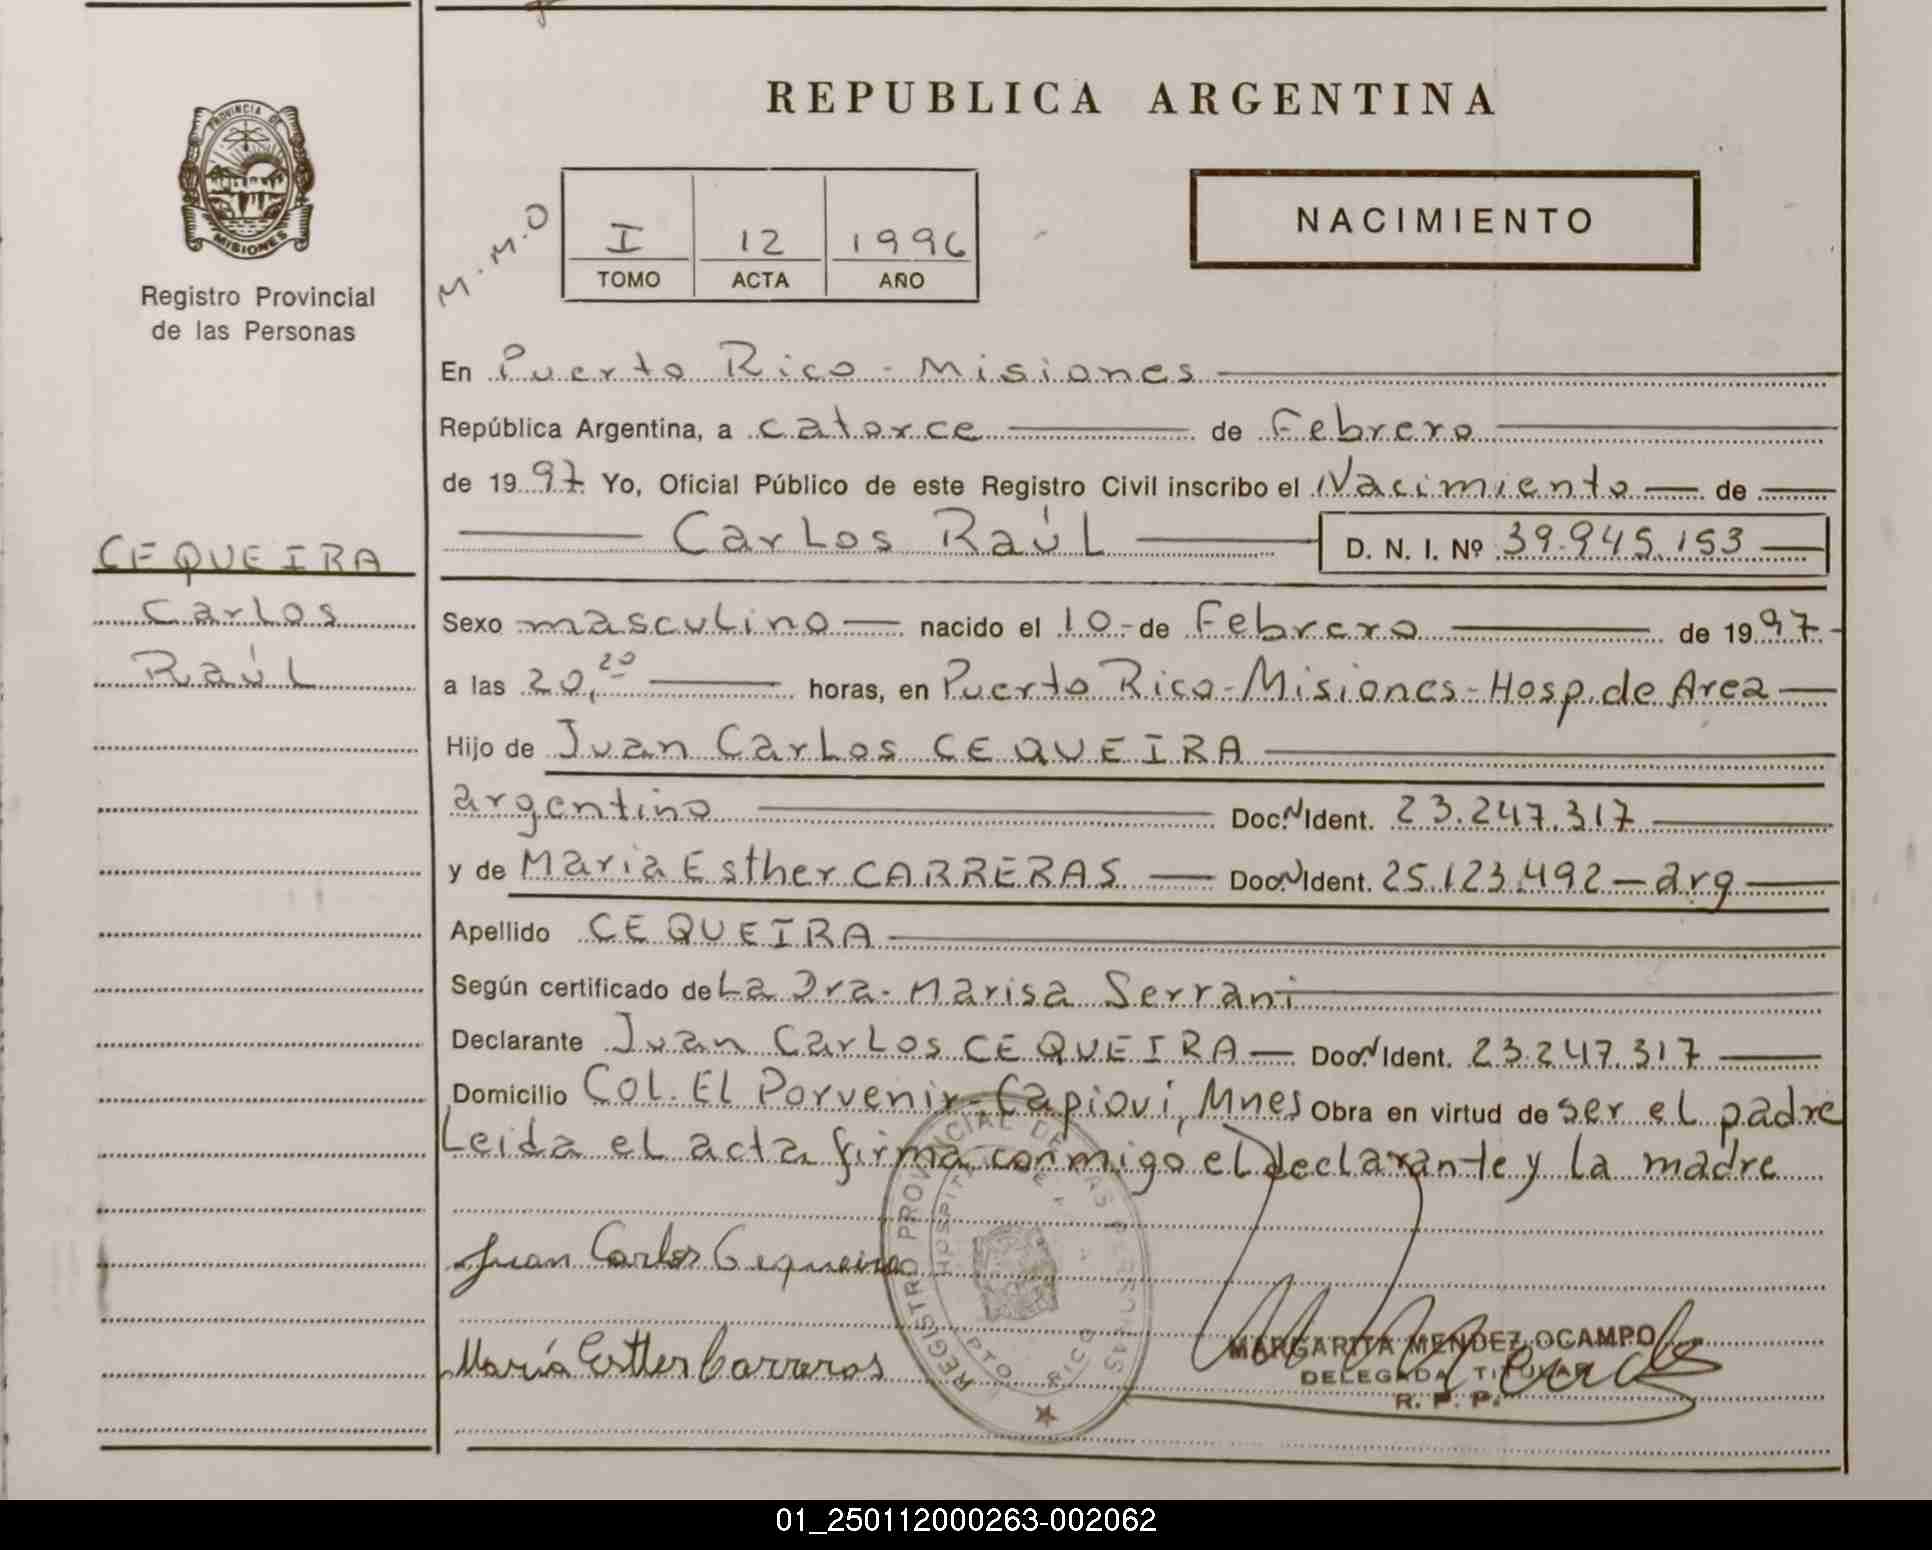 REPUBLICA ARGENTINA
PROVINCIA DE
MISIONES
Registro Provincial
de las Personas
M.M.O
I 12 1996
TOMO ACTA AÑO
NACIMIENTO
En Puerto Rico - Misiones
República Argentina, a catorce de Febrero
de 1997 Yo, Oficial Público de este Registro Civil inscribo el Nacimiento de
Carlos Raúl D. N. I. Nº 39.945.153
CEQUEIRA
Carlos
Raúl
Sexo masculino nacido el 10 - de Febrero de 1997-
a las 20,20 horas, en Puerto Rico - Misiones - Hosp. de Area
Hijo de Juan Carlos CEQUEIRA
argentino Doc. N Ident. 23.247.317
y de Maria Esther CARRERAS Doc. N Ident. 25.123.492 - arg
Apellido CEQUEIRA
Según certificado de La Dra. Marisa Serrani
Declarante Juan Carlos CEQUEIRA Doc. N Ident. 23.247.317
Domicilio Col. El Porvenir - Capioví, Mnes Obra en virtud de ser el padre
Leida el acta firma conmigo el declarante y la madre
Juan Carlos Cequeira
María Esther Carreras
REGISTRO PROVINCIAL DE LAS PERSONAS
PTO RICO
MARGARITA MENDEZ OCAMPO
DELEGADA TITULAR
R. P. P.
01_250112000263-002062